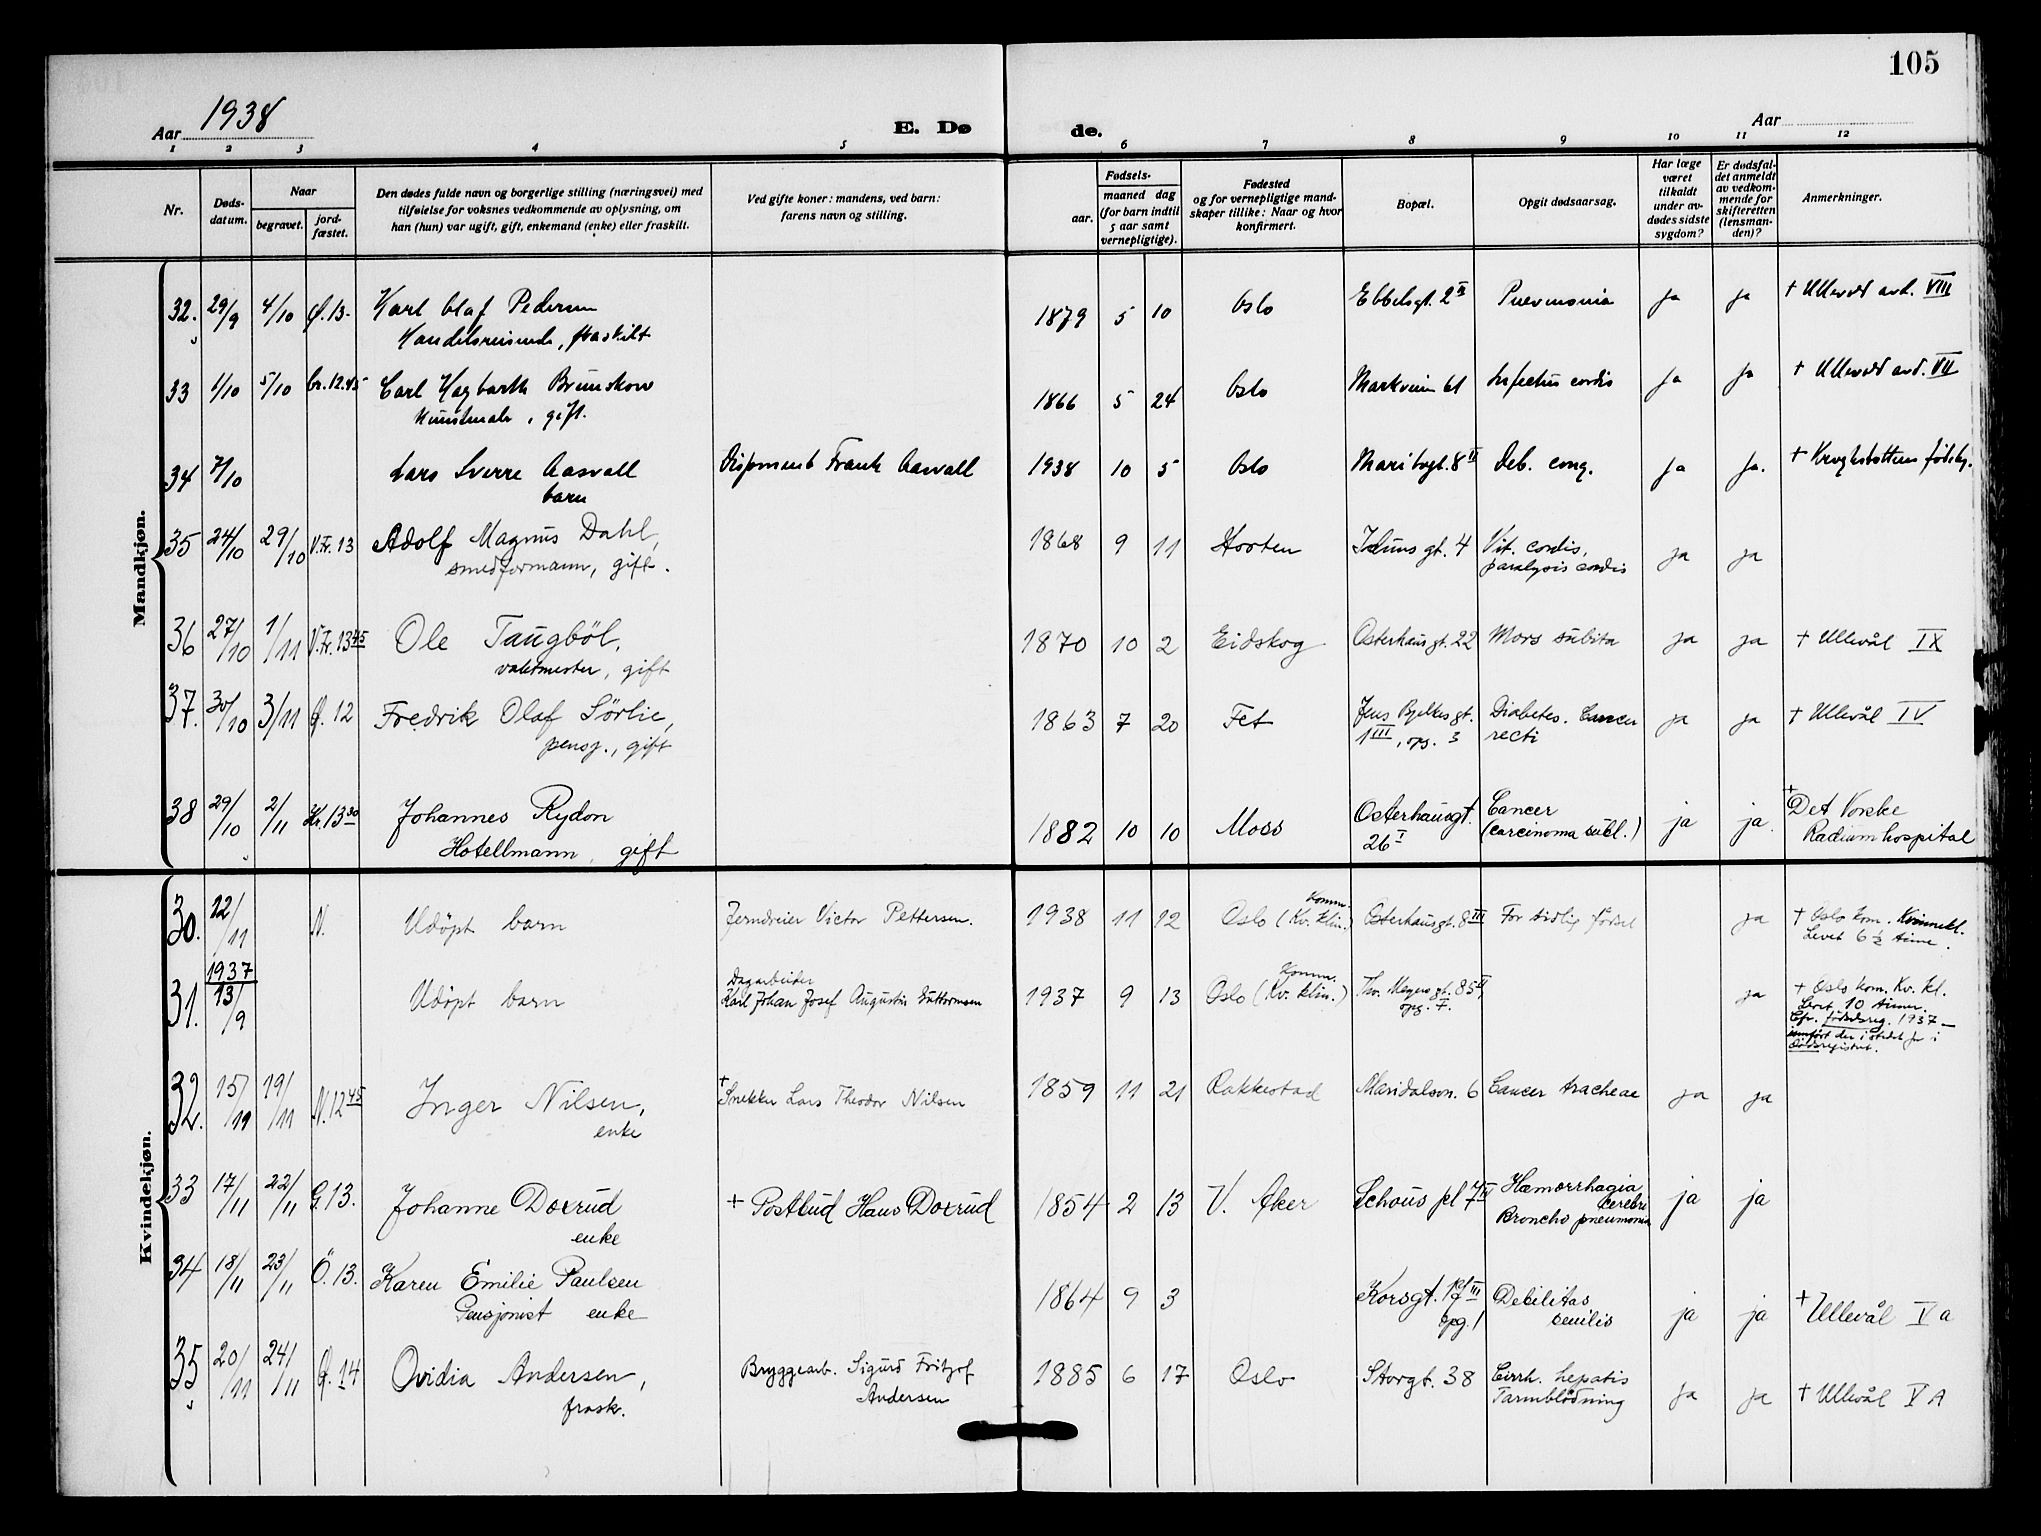 105
Aar 1938
E. Døde.
Aar
1 2 3 4 5 6 7 8 9 10 11 12
Nr.
Døds-
datum.
Naar
begravet.
jord-
fæstet.
Den dødes fulde navn og borgerlige stilling (næringsvei) med
tilføielse for voksnes vedkommende av oplysning, om
han (hun) var ugift, gift, enkemand (enke) eller fraskilt.
Ved gifte koner: mandens, ved barn:
farens navn og stilling.
Fødsels-
aar.
maaned dag
(for barn indtil
5 aar samt
vernepligtige).
Fødested
og for vernepligtige mand-
skaper tillike: Naar og hvor
konfirmert.
Bopæl.
Opgit dødsaarsag.
Har læge
været
tilkaldt
under av-
dødes sidste
sygdom?
Er dødsfal-
det anmeldt
av vedkom-
mende for
skifteretten
(lensman-
den)?
Anmerkninger.
Mandkjøn.
32. 29/9 4/10 Ø.13- Karl Olaf Pedersen 1879 5 10 Oslo Ebbelsgt. 2 II Pneumonia ja ja + Ullevål avd. VIII
Handelsreisende, fraskilt
33 1/10 5/10 Gr. 12.45 Carl Hagbarth Brunskow 1866 5 24 Oslo Markveien 61 cordis ja ja + Ullevål avd. VII
Kunstmaler, gift.
34 7/10 Lars Sverre Aasvall Disponent Frank Aasvall 1938 10 5 Oslo Maribogt. 8 II Deb. cong. ja ja. + Kroghstøttens fødeh.
barn
35 24/10 29/10 V.Fr. 13 Adolf Magnus Dahl, 1868 9 11 Horten Iduns gt. 4 Vit. cordis, ja ja
smedformann, gift. paralysis cordis
36 27/10 1/11 V.Fr. 13 45 Ole Taugböl, 1870 10 2 Eidskog Osterhaus gt. 22 Mors subita ja ja + Ullevål IX
vaktmester, gift
37. 30/10 3/11 Ø. 12 Fredrik Olaf Sörlie, 1863 7 20 Fet Jens Bjelkes gt. Diabetes. Cancer ja ja + Ullevål IV
pensj., gift 1 III, opg. 3 recti
38 29/10 2/11 Kr. 13 30 Johannes Rydon 1882 10 10 Moss Osterhausgt. Cancer ja ja. + Det Norske
Hotellmann, gift 26 I (carcinoma subl.) Radiumhospital
Kvindekjøn.
30. 12/11 N. Udöpt barn Jerndreier Victor Pettersen. 1938 11 12 Oslo (Komm. Kv. klin.) Osterhausgt. 8 III For tidlig födsel ja + Oslo kom. Kvinnekl.
Levet 6 ½ time.
1937
31. 13/9 Udöpt barn Dagarbeider
Karl Johan Josef Augustin Guttormsen 1937 9 13 Oslo (Komm. Kv. klin.) Thv. Meyers gt. 85 II ja + Oslo kom. Kv. kl.
opg. I. Levet 10 timer.
Cfr. födselsreg. 1937 –
innfört der i stedet for i
Dödsregistret.
32. 15/11 19/11 N. 12 45 Inger Nilsen, + Snekker Lars Theodor Nilsen 1859 11 21 Rakkestad Maridalsvn. 6 Cancer tracheae ja ja
enke
33 17/11 22/11 G. 13. Johanne Doxrud + Postbud Hans Doxrud 1854 2 13 V. Aker Schous pl 7 III Hæmorrhagia ja ja
enke cerebri
Broncho pneumonia
34 18/11 23/11 Ö. 13. Karen Emilie Paulsen 1864 9 3 Korsgt. 17 III Debilitas ja ja + Ullevål V a
Pensjonist enke opg. 1 senilis
35 20/11 24/11 Ø. 14 Ovidia Andersen, Bryggearb. Sigurd Fritjof 1885 6 17 Oslo Storgt. 38 Cirrh. hepatis ja ja + Ullevål V A
frask. Andersen Tarmblödning